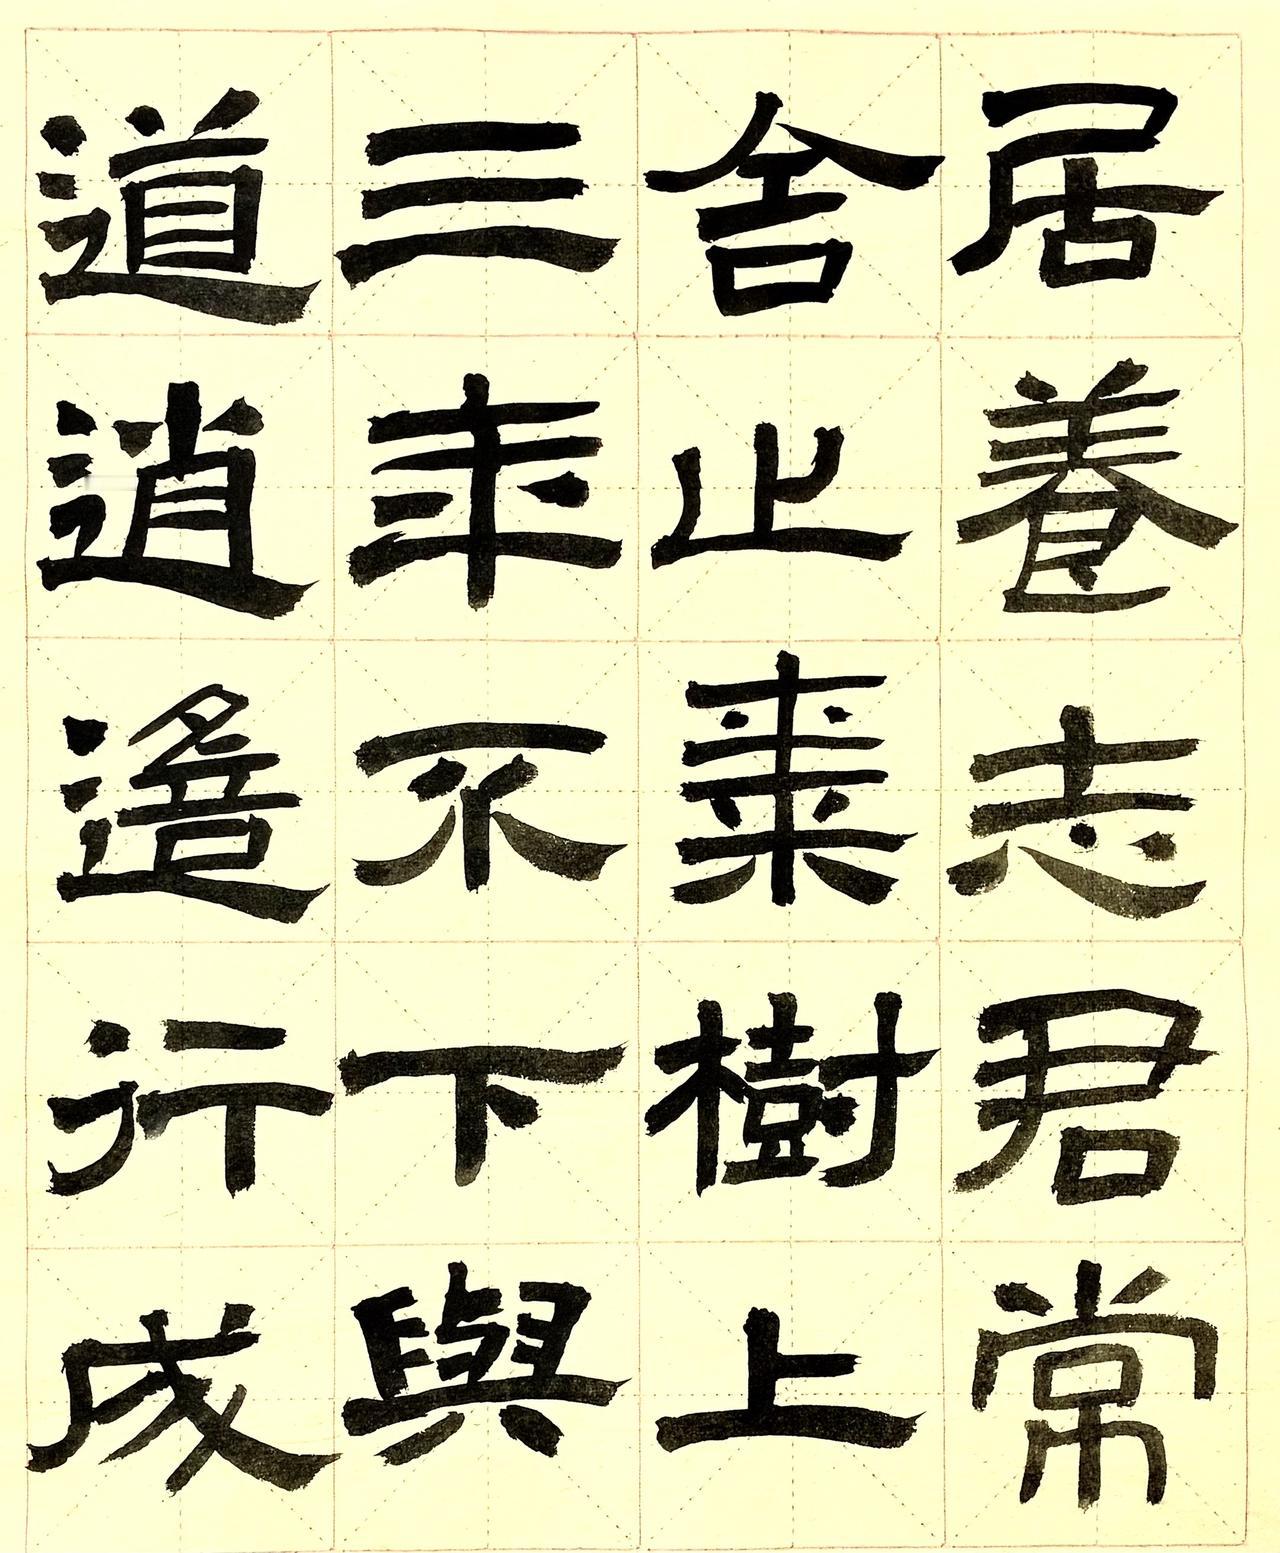 居養志君常
舍止棗樹上
三年不下與
道逍遙行成